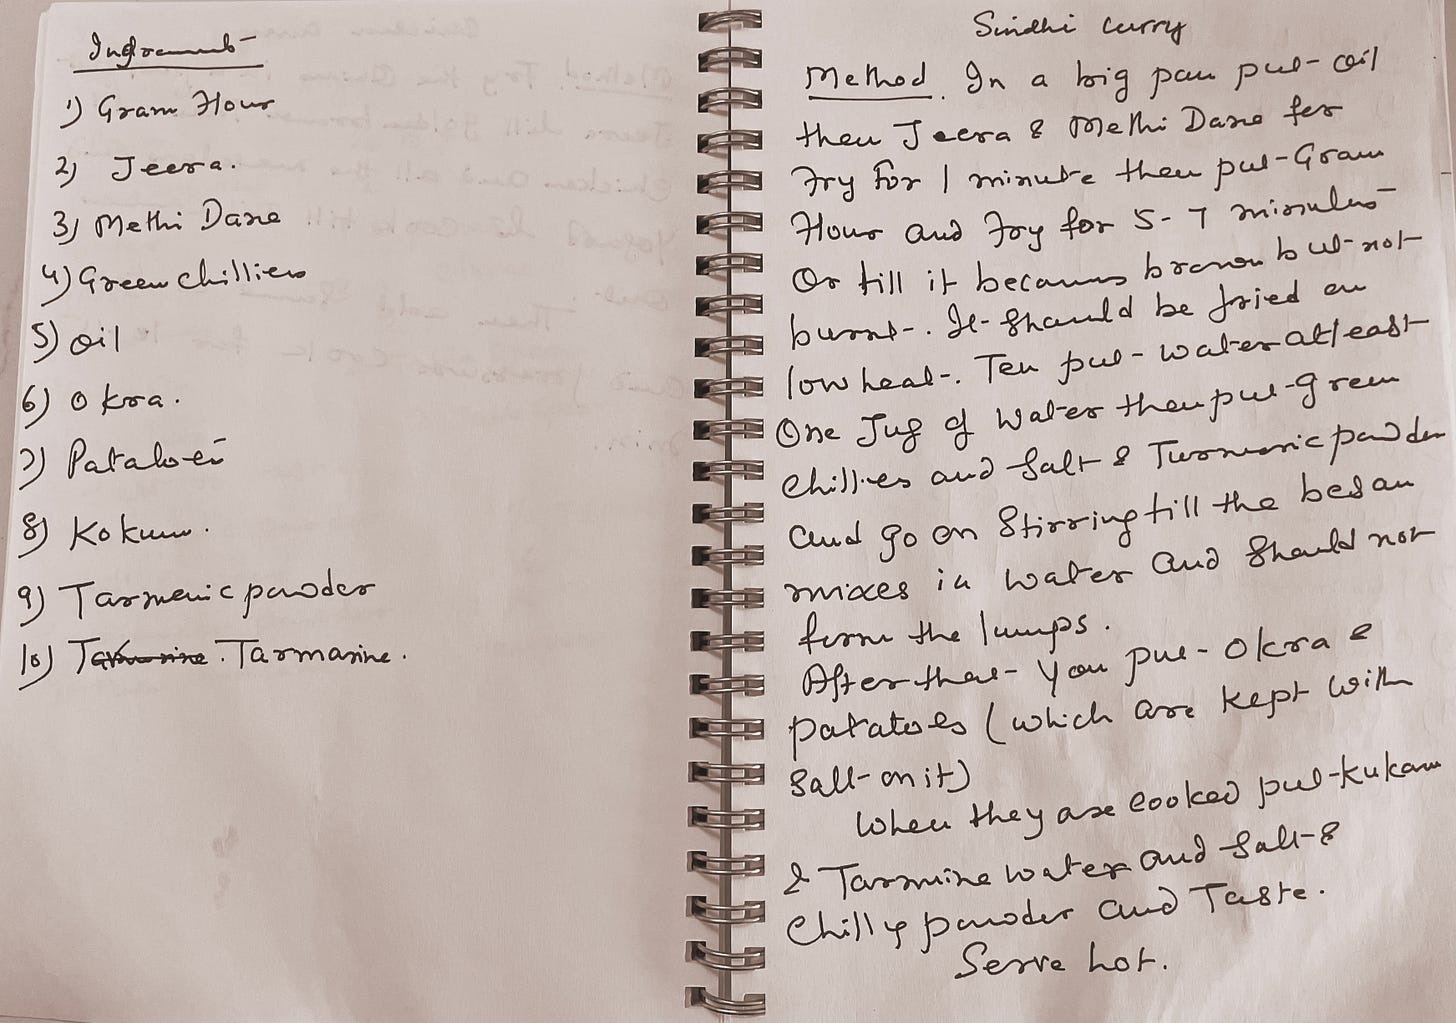 Ingrament
1) Gram Flour
2) Jeera.
3) Methi Dane
4) Green chillies
5) Oil
6) Okra.
7) Patatoes
8) Kokum.
9) Tarmeric powder
10) Tarmarine . Tarmarine .
Sindhi curry
Method. In a big pan put oil
then Jeera & Methi Dane for
Fry For 1 minute then put Gram
Flour and Fry for 5-7 minutes
Or till it becomes brown but not
burnt. It should be fried on
low heat. Ten put water atleast
One Jug of Water then put green
chillies and Salt & Turmeric powder
and go on Stirring till the besan
mixes in water and should not
form the lumps.
After that You put Okra &
Patatoes (which are kept with
Salt on it)
When they are cooked put Kukam
& Tarmine water and Salt &
Chilly powder and Taste.
Serve hot.